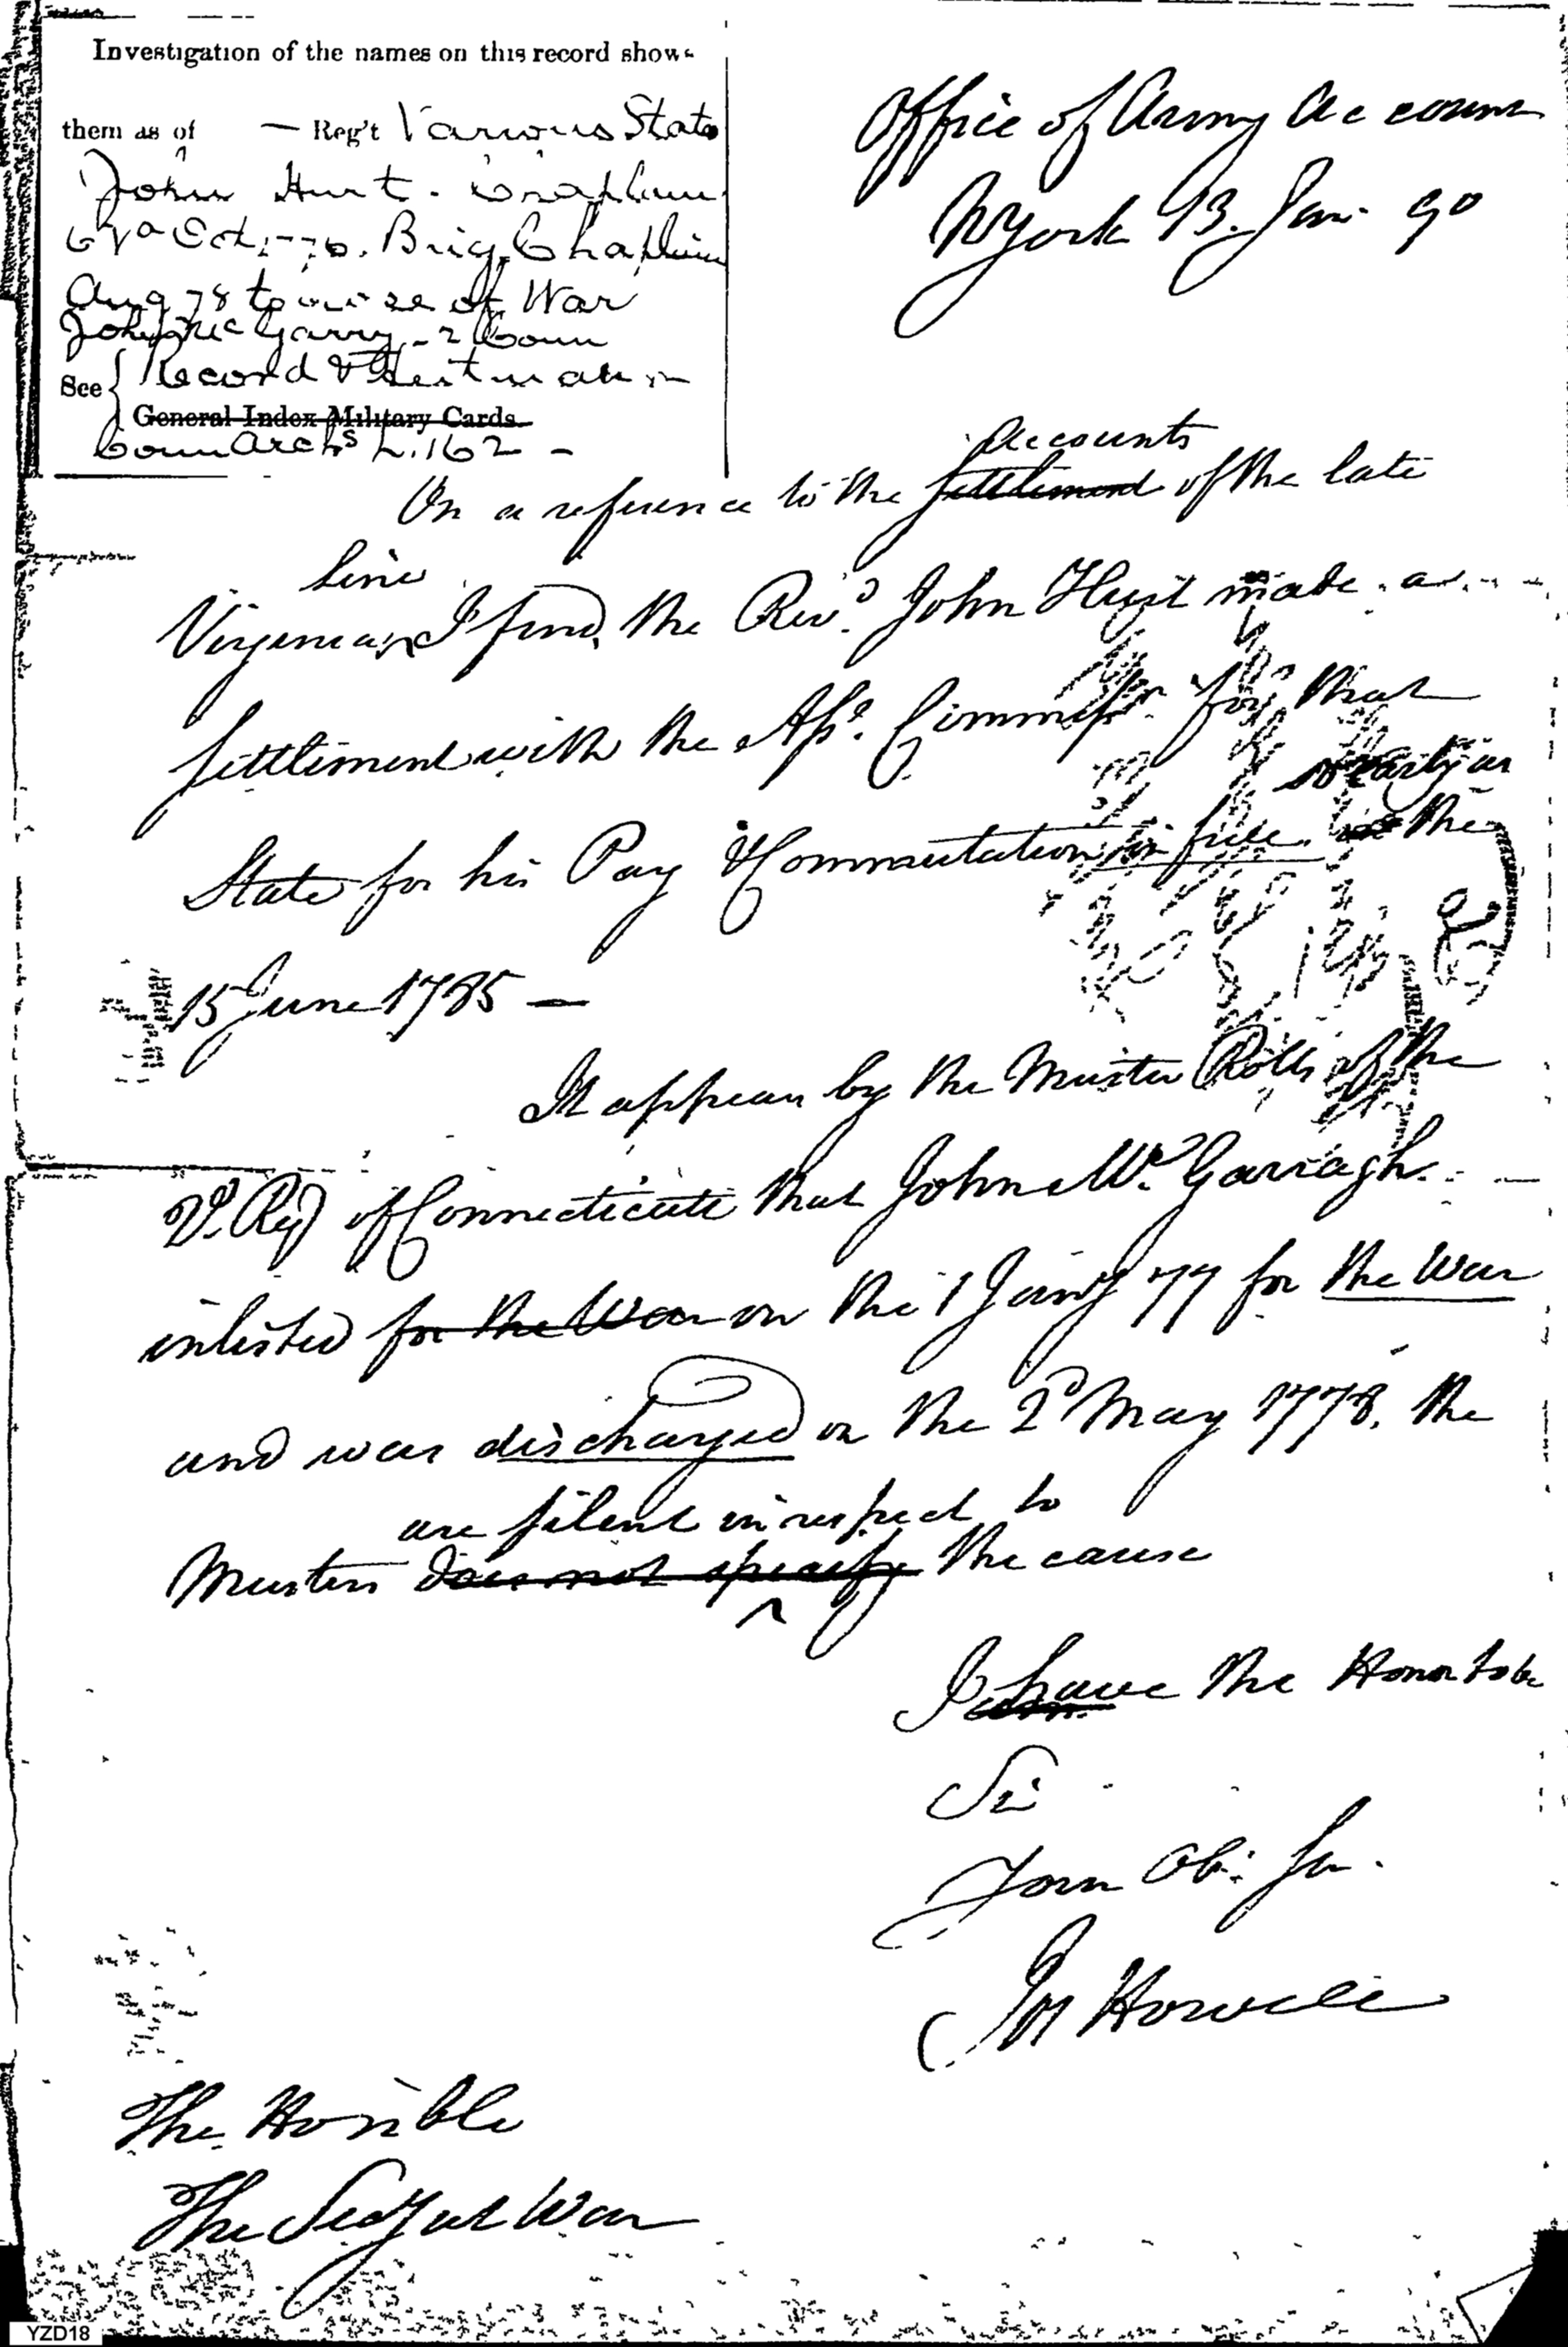 Investigation of the names on this record shows
them as of — Reg't Various States
John Hurt. Chaplain
6 Va Oct. 1776. Brig. Chaplain
Aug 78 to close of War
John Mc Garry - 2 Conn
See { Record & Heitman
General Index Military Cards
Conn Archs 162 -
Office of Army Accounts
NYork 13. Jany 90
Accounts
On a reference to the settlement of the late
line
Virginia, I find, the Revd. John Hurt made a
settlement with the Asst. Commissr. for that
so early as
State for his Pay & Commutation in full the
15 June 1785 —
It appears by the Muster Rolls of the
2d. Regt of Connecticut that John Mc. Garragh
inlisted for the War on the 1 Jany 77 for the War
and was discharged on the 2d May 1778. the
are silent in respect to
Musters does not specify the cause
^
I have the Honor to be
Sir
Your Ob: Ser.
Jn Howell
The Honble
The Secy at War
YZD18